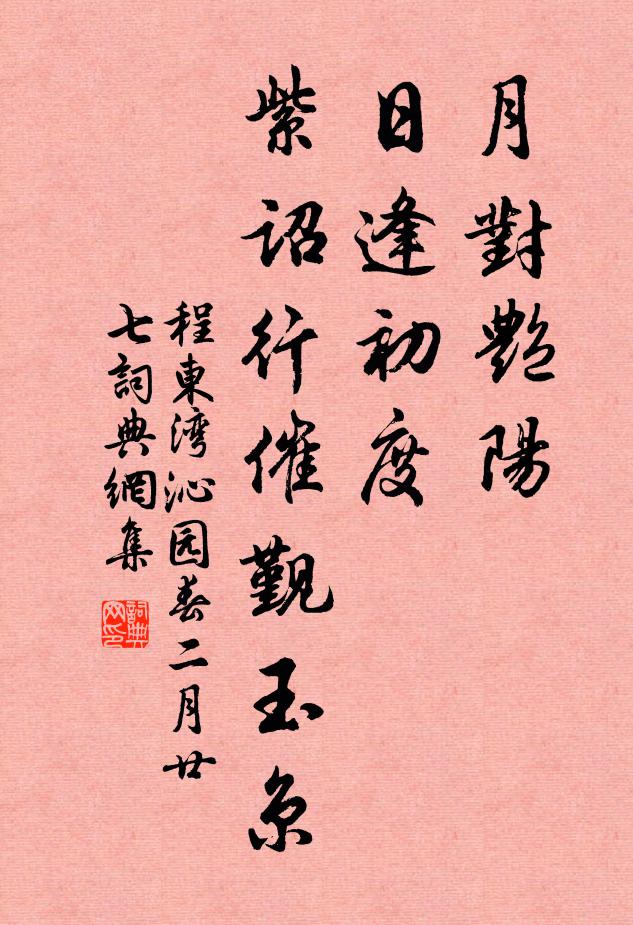 月對艷陽
日逢初度
紫詔行催覲玉京
程東湾沁园春二月廿
七詞典網集
詞典网印